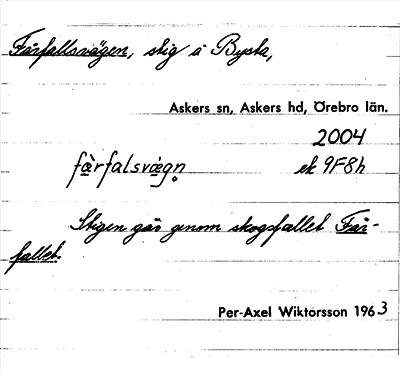 Fårfallsvägen, stig å Bysta,
Askers sn, Askers hd, Örebro län.
2004
fàrfalsvägn̥ ek 9F8h
Stigen går genom skogsfallet Får-
fallet.
Per-Axel Wiktorsson 1963